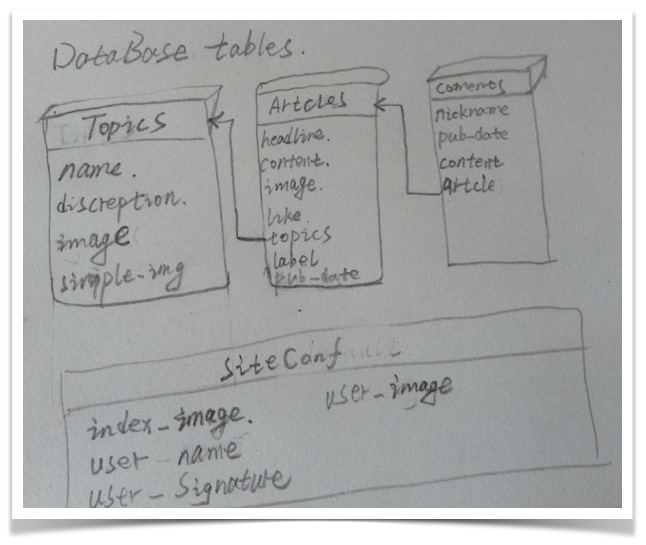 DataBase tables.
Topics
name.
discreption.
image
simple_img
Artcles
headline.
content.
image.
like.
topics
label
pub-date
coments
nickname
pub-date
content
Artcle
siteConf
index_image.
user name
user_Signature
user_image